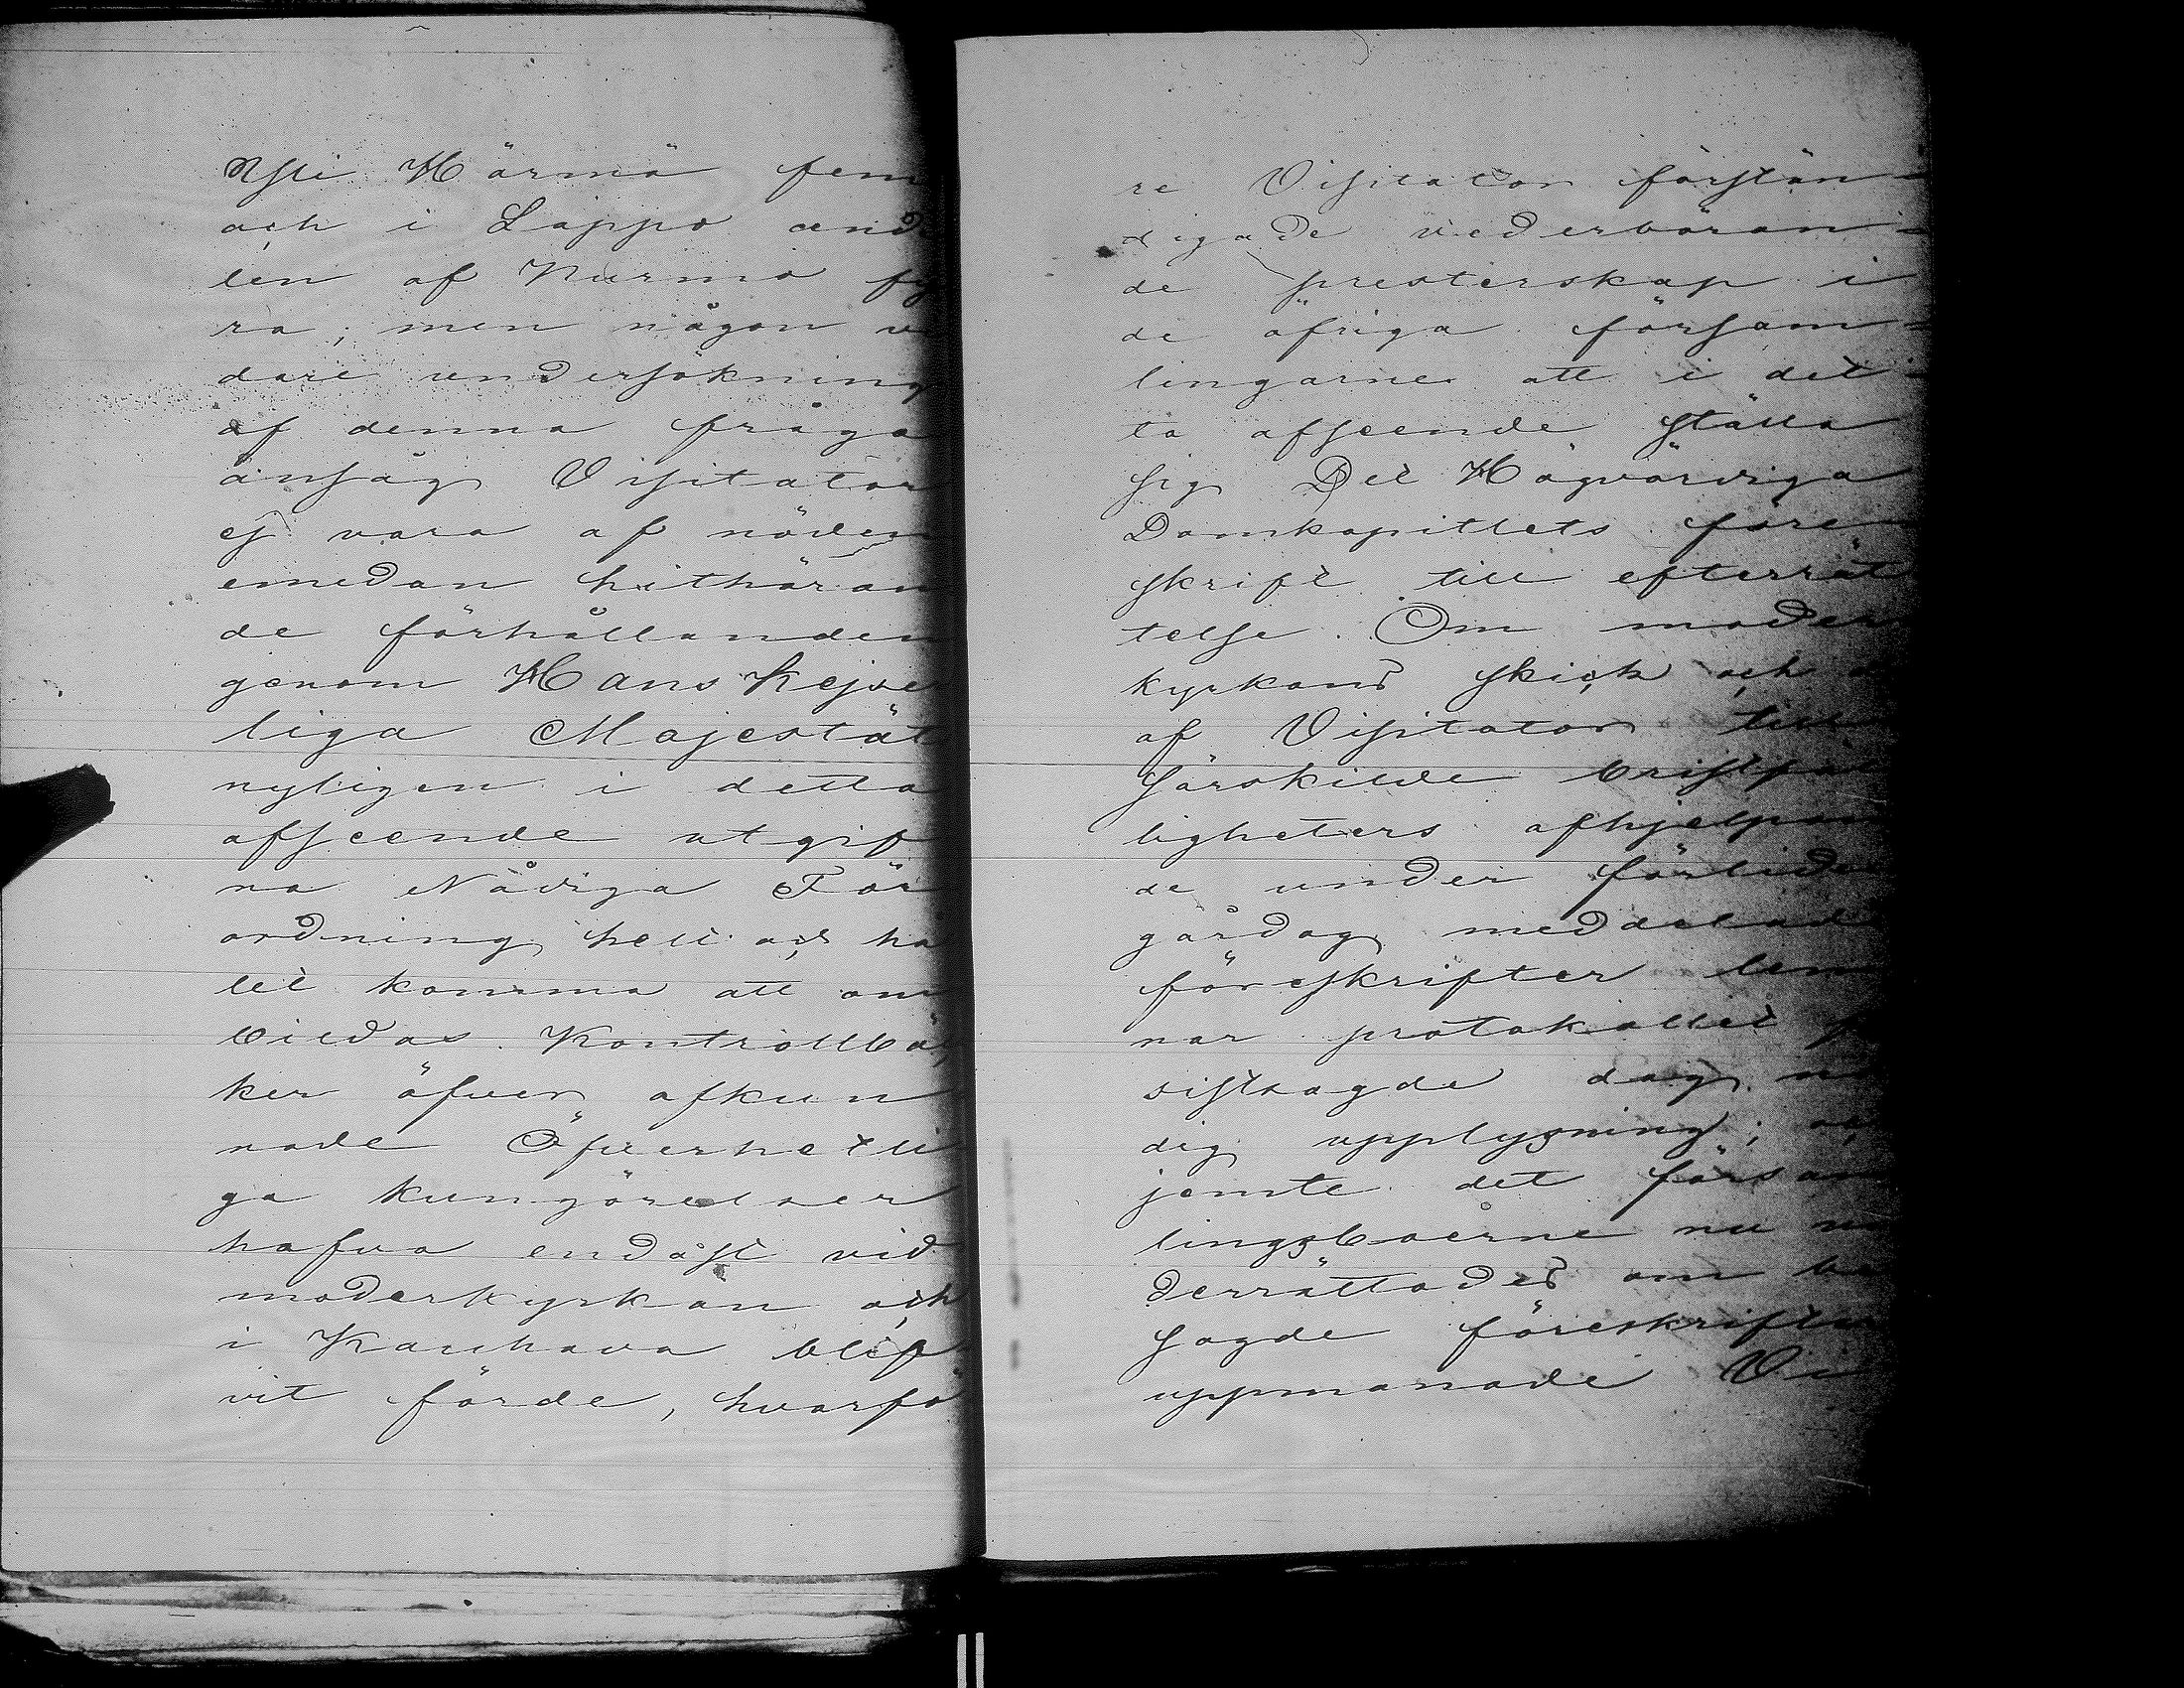 Ylli Härmä fem
och i Lappo and
len af Nurmo fy
ra; men någon vi
dare undersökning
af denna fråga
ansåg Visitator
ej vara af nöden
emedan hithöran
de förhållanden
genom Hans Kejser
liga Majestät
nyligen i detta
afseende utgif
na Nådiga För
ordning helt och hå
let komma att om
bildas. Kontrollbö
ker öfver afkun
nade Öfverhetli
ga kungörelser
hafva endast vid
moderkyrkan och
i Kauhava blif
vit förde, hvarfö
re Visitator förstän-
digade vederböran-
de presterskap i
de öfriga försam-
lingarne att i det-
ta afseende ställa
sig Det Högvördiga
Domkapitlets före
skrift till efterrät
telse. Om moder
kyrkans skick och
af Visitator till
särskilde bristfäl
ligheters afhjelpan
de under förliden
gårdag meddelade
föreskrifter lem
nar protokollet f
sistsagde dag nö
dig upplysning; och
jemte det försam
lingsboerne nu un
derrättades om be
sagde föreskrifter
uppmanade Vi